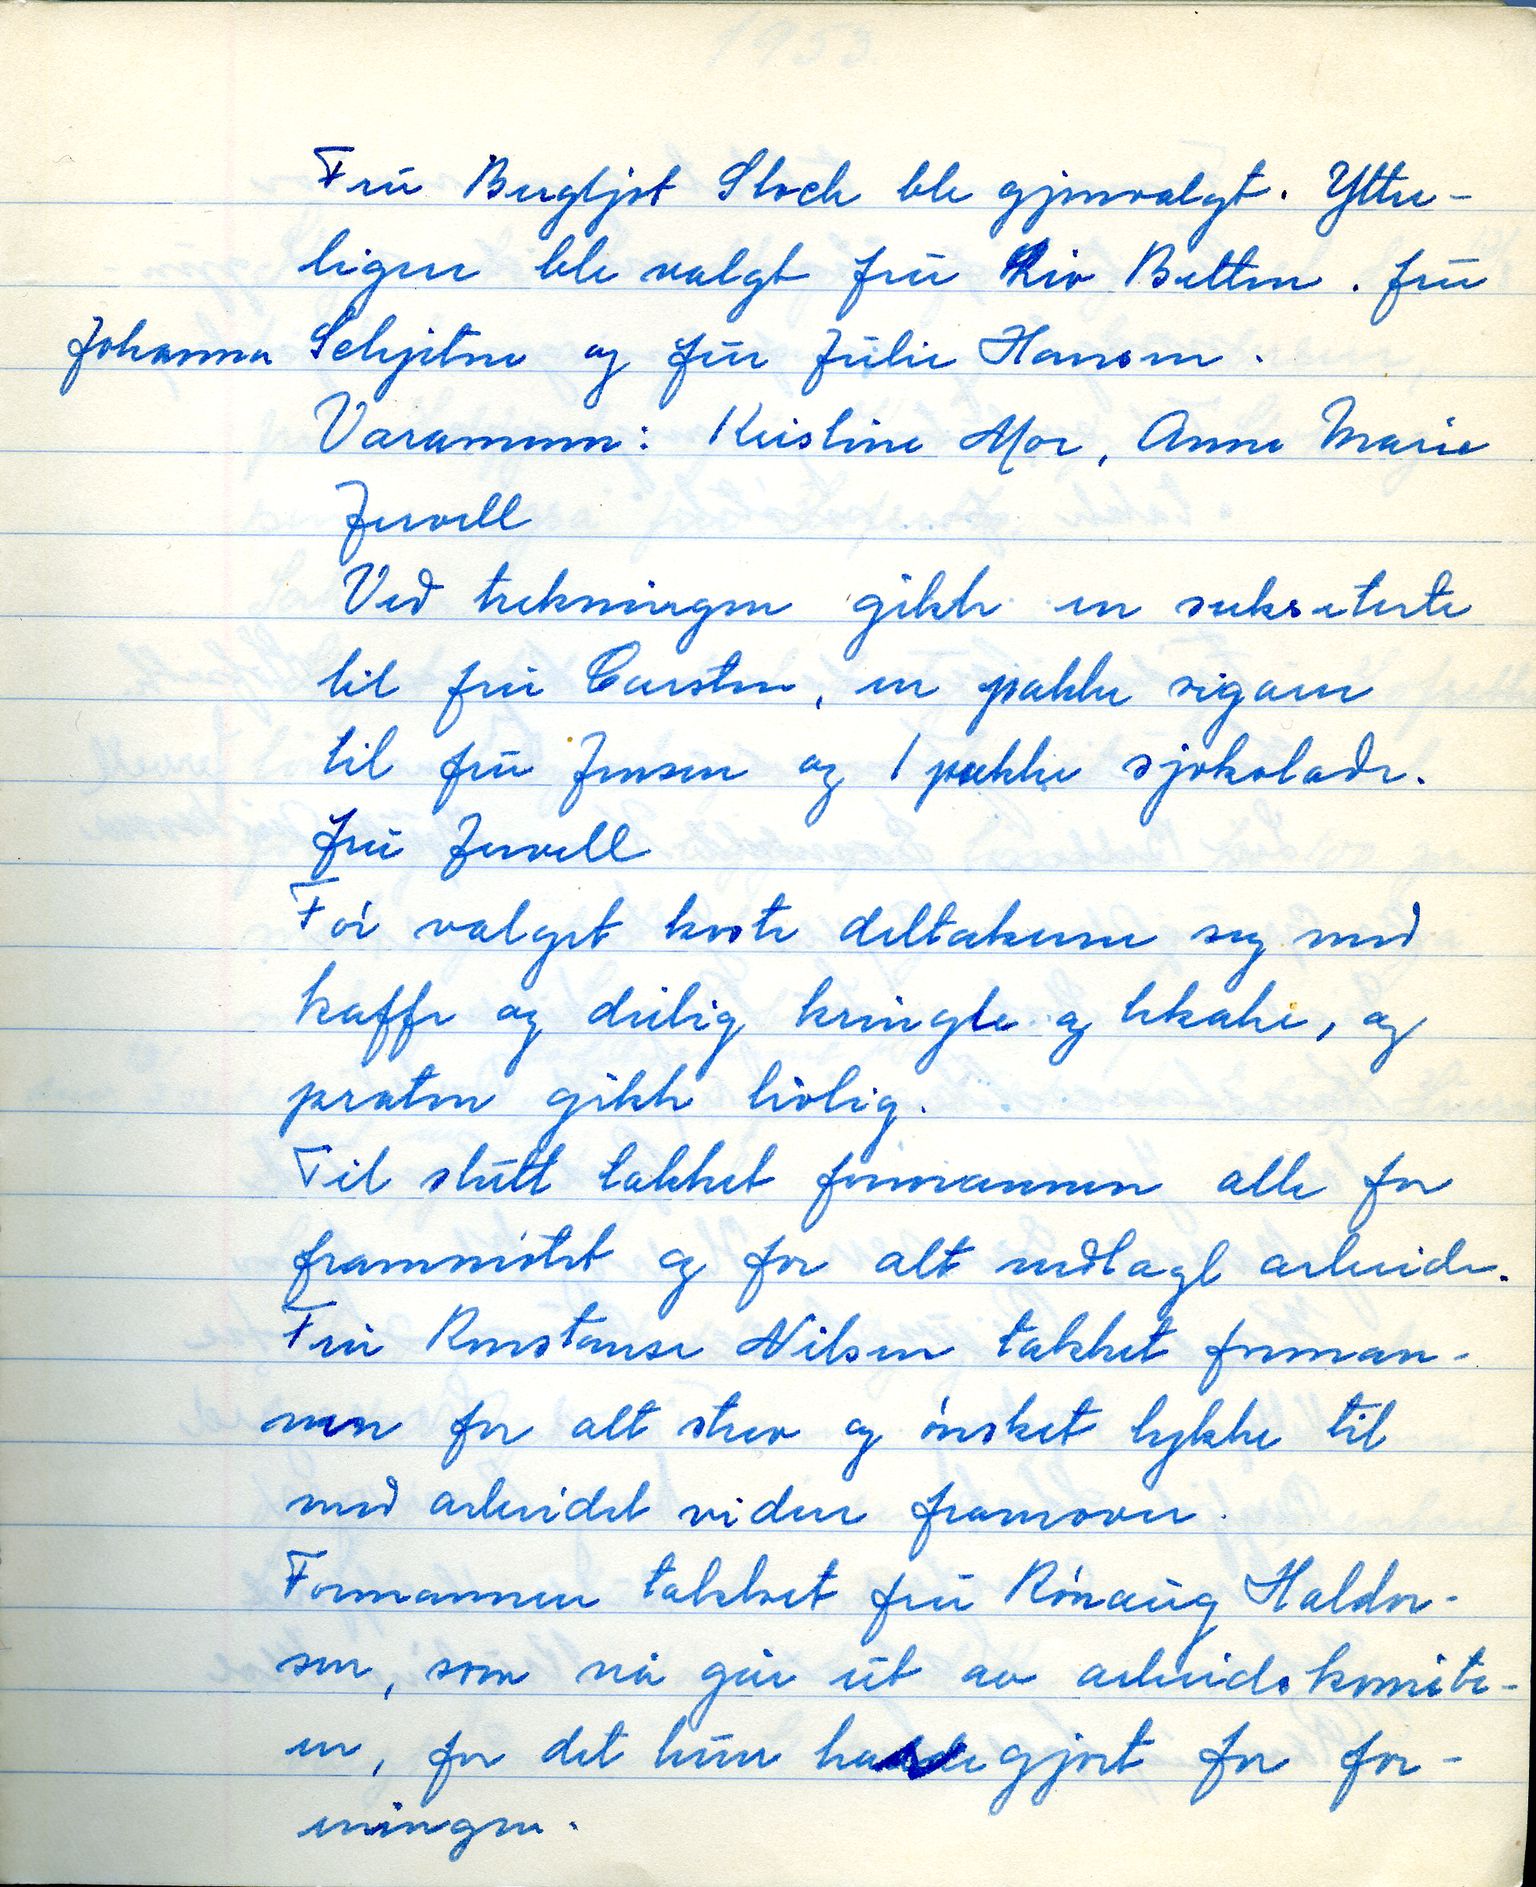 Fru Bergljot Stock ble gjenvalgt. Ytter-
ligere ble valgt fru Liv Betten. fru
Johanna Schjetne og fru Julie Hansen.
Varamenn: Kristine Moe, Anne Marie
Jervell
Ved trekningen gikk en seksterte
til fru Carsten, en pakke sigarer
til fru Jensen og 1 pakke sjokolade.
fru Jervell
Før valget koste deltakerne seg med
kaffe og deilig kringle og tekake, og
praten gikk livlig.
Til slutt takket formannen alle for
frammøtet og for alt nedlagt arbeide.
Fru Konstanse Nilsen takket forman-
nen for alt strev og ønsket lykke til
med arbeidet videre framover.
Formannen takket fru Rønaug Haldor-
sen, som nå går ut av arbeidskomite-
en, for det hun hadde gjort for for-
eningen.